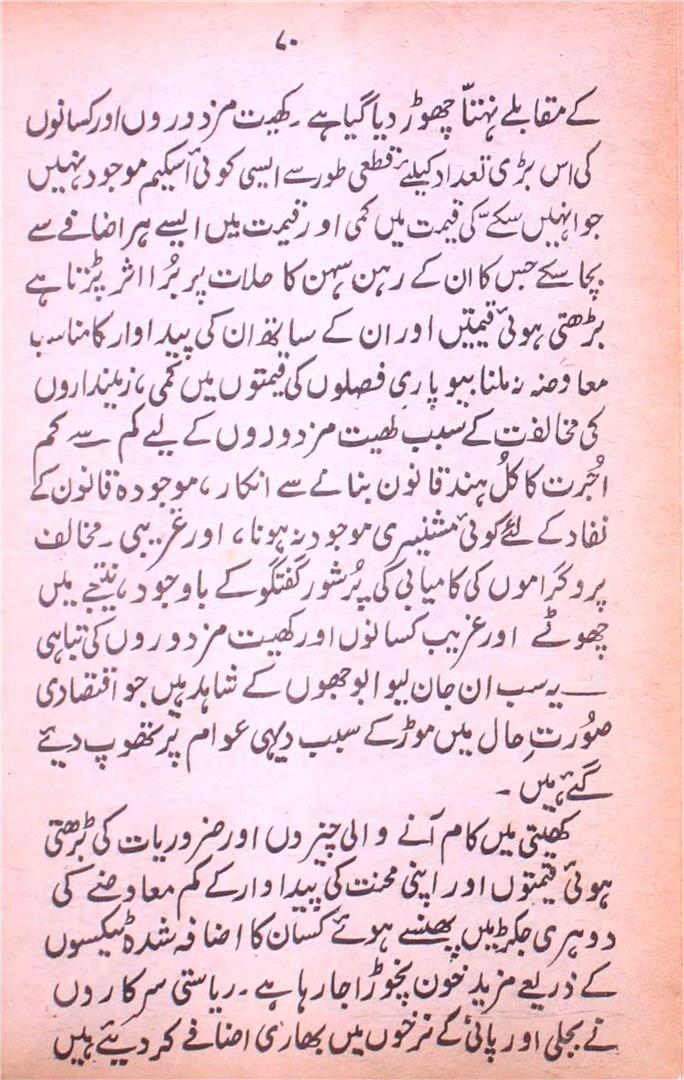 ۷۰
کے مقابلے نہتّا چھوڑ دیا گیا ہے ۔ کھیت مزدوروں اور کسانوں
کی اس بڑی تعداد کیلئے قطعی طور سے ایسی کوئی اسکیم موجود نہیں
جو انہیں سکّے کی قیمت میں کمی اور قیمت میں ایسے ہر اضافے سے
بچا سکے جس کا ان کے رہن سہن کا حلات پر بُرا اثر پڑتا ہے
بڑھتی ہوئی قیمتیں اور ان کے ساتھ ان کی پیداوار کا مناسب
معاوضہ نہ ملنا بیوپاری فصلوں کی قیمتوں میں کمی، زمینداروں
کی مخالفت کے سبب کھیت مزدوروں کے لیے کم سے کم
اُجرت کا کُل ہند قانون بنانے سے انکار، موجودہ قانون کے
نفاد کے لئے کوئی مشنیری موجود نہ ہونا، اور غریبی ۔ مخالف
پروگراموں کی کامیابی کی پُرشور گفتگو کے باوجود، نتیجے میں
چھوٹے اور غریب کسانوں اور کھیت مزدوروں کی تباہی
— یہ سب ان جان لیوا بوجھوں کے شاہد ہیں جو اقتصادی
صُورتِ حال میں موڑ کے سبب دیہی عوام پر تھوپ دیئے
گئے ہیں ۔
کھیتی میں کام آنے والی چیزوں اور ضروریات کی بڑھتی
ہوئی قیمتوں اور اپنی محنت کی پیداوار کے کم معاوضے کی
دوہری جکڑ میں پھنسے ہوئے کسان کا اضافہ شدہ ٹیکسوں
کے ذریعے مزید خون نچوڑا جا رہا ہے ۔ ریاستی سرکاروں
نے بجلی اور پانی کے نرخوں میں بھاری اضافے کر دیئے ہیں